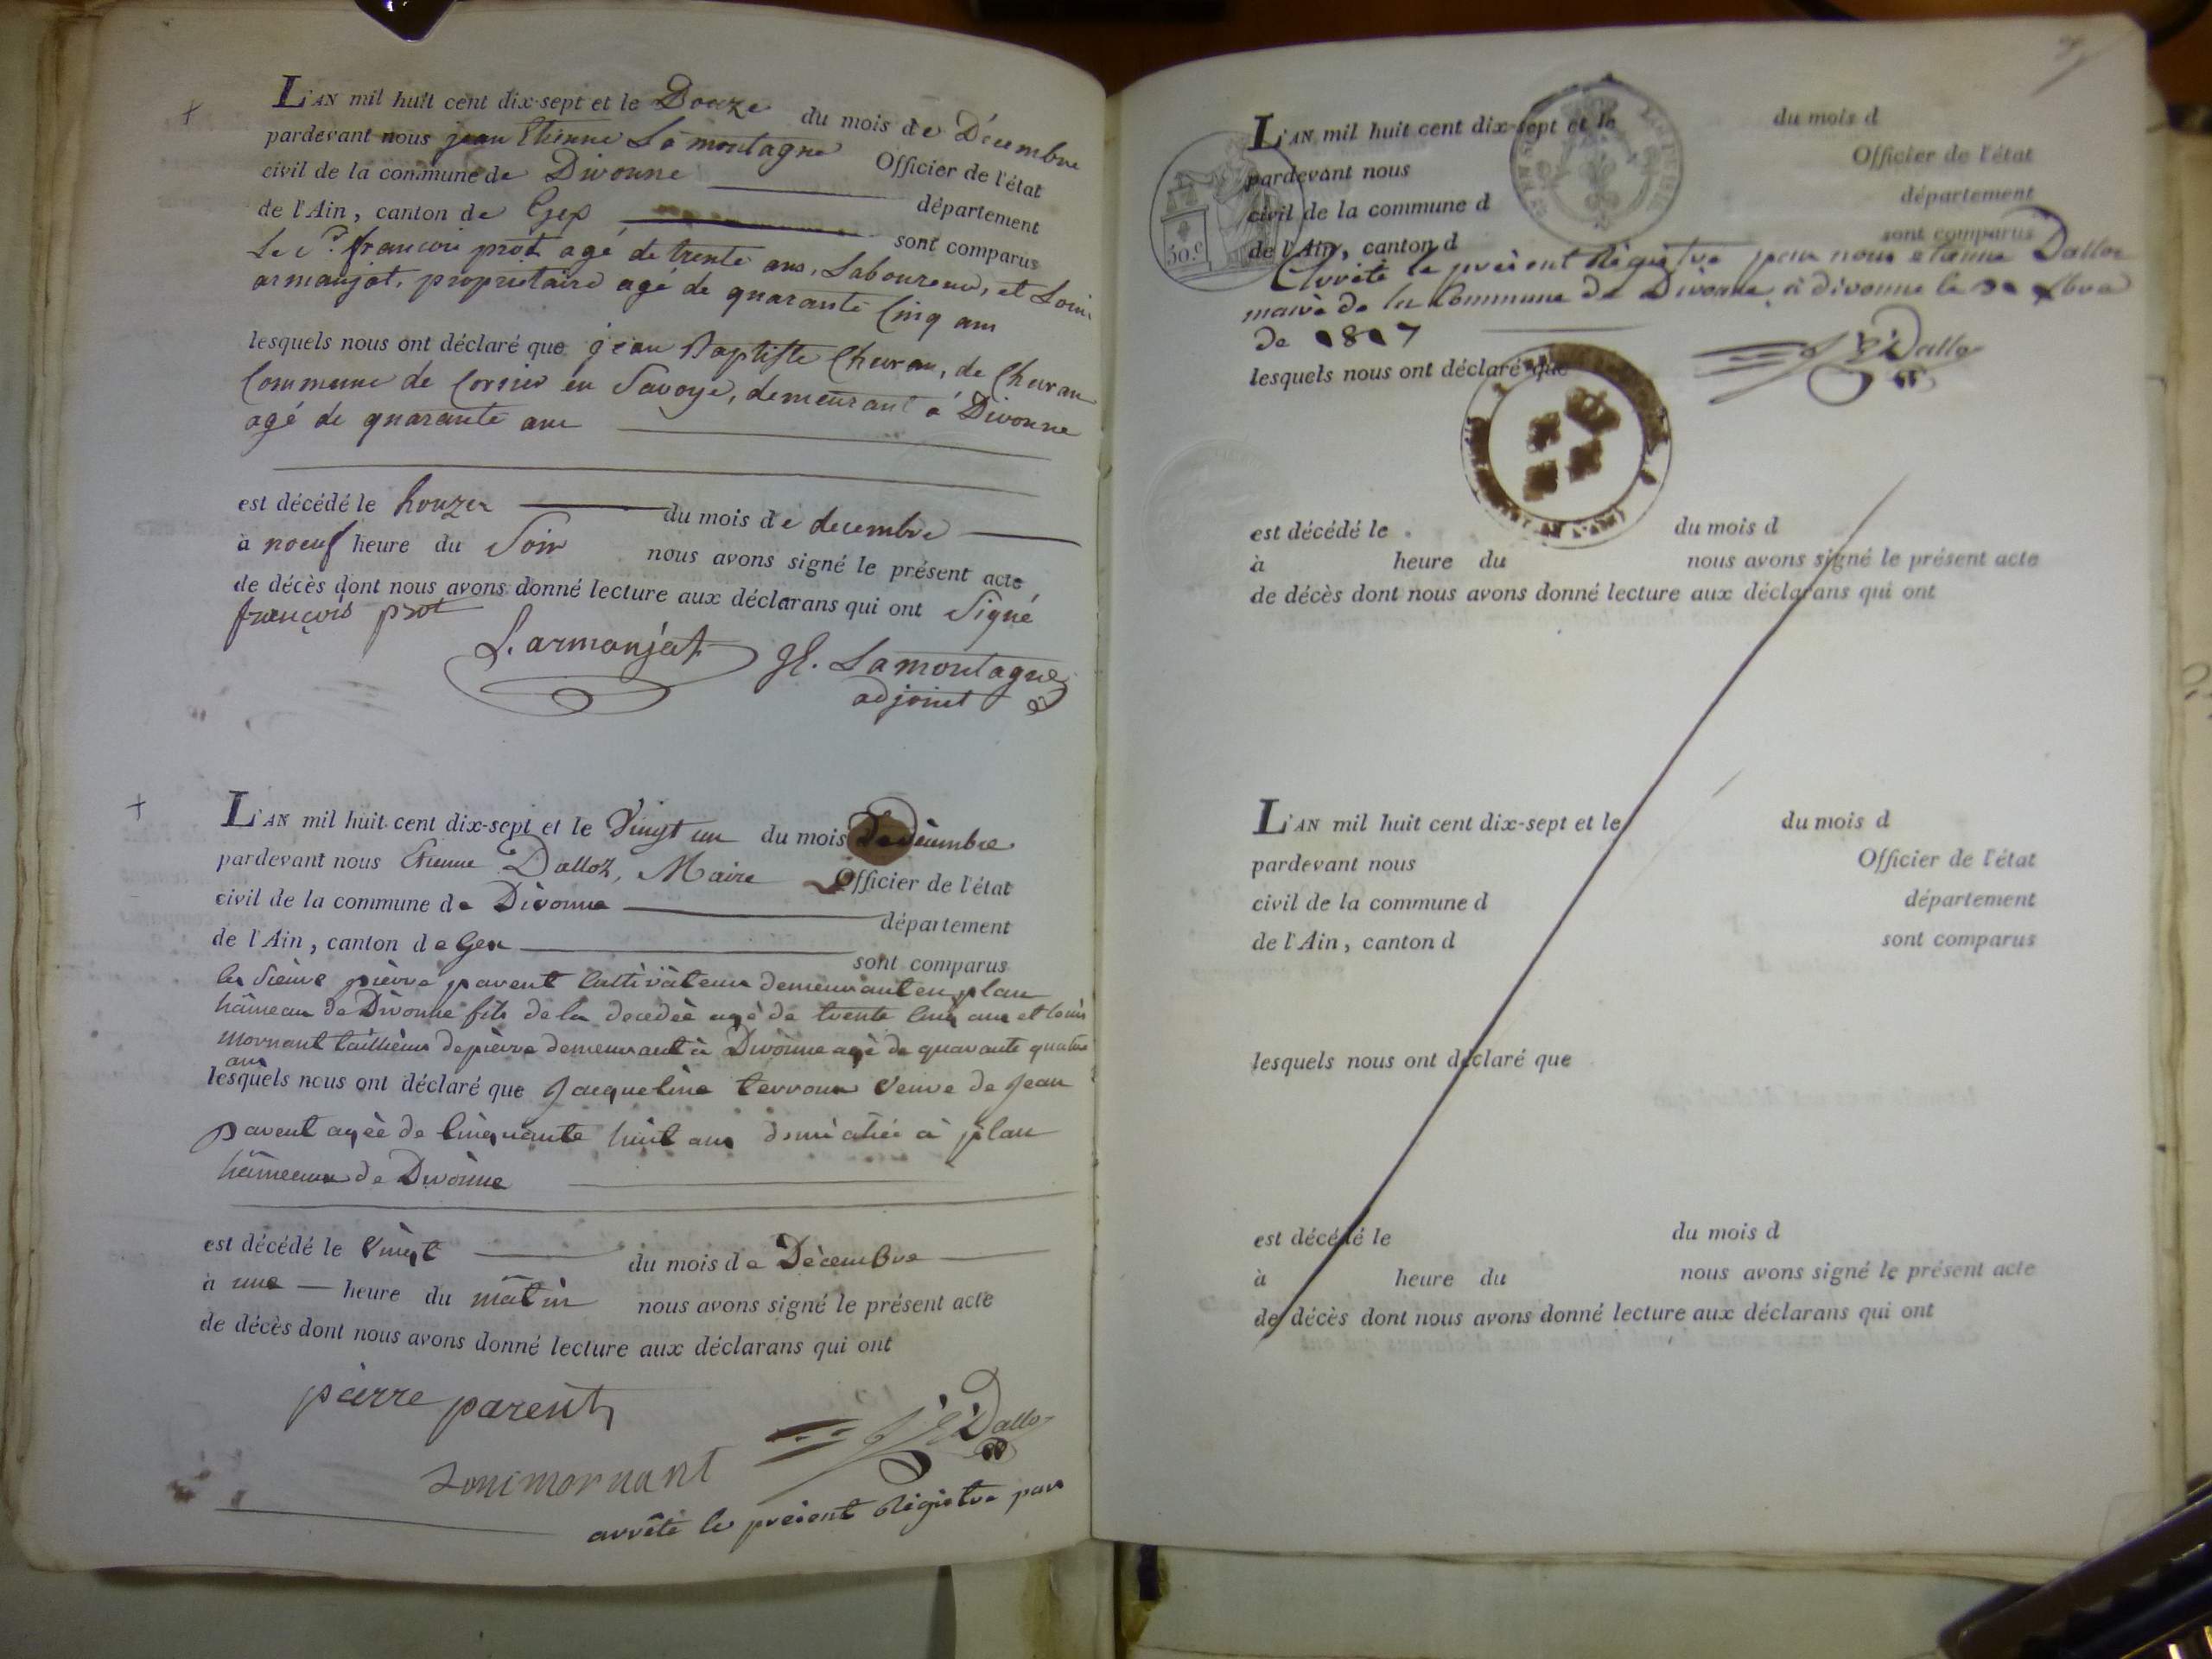 L'AN mil huit cent dix-sept et le Douze du mois de Décembre
pardevant nous jean Etienne Lamontagne Officier de l'état
civil de la commune de Divonne département
de l'Ain, canton de Gex sont comparus
Le Sr. françois prot agé de trente ans, Laboureur, et Louis
armanjat, proprietaire agé de quarante Cinq ans
lesquels nous ont déclaré que jean Baptiste Chevran, de Chevran
Commune de Corsier en Savoye, demeurant à Divonne
agé de quarante ans
est décédé le honze du mois de decembre
à noeuf heure du Soir nous avons signé le présent acte
de décès dont nous avons donné lecture aux déclarans qui ont Signé
françois prot
L. armanjat JE. Lamontagne
adjoint
L'AN mil huit cent dix-sept et le Vingt un du mois de Décembre
pardevant nous Etienne Dalloz, Maire Officier de l'état
civil de la commune de Divonne département
de l'Ain, canton de Gex sont comparus
les sieurs pierre parent Cultivateur demeurant en plan
hâmeau de Divonne fils de la decedée agé de trente Cinq ans et Louis
Mornant tailleur de pierre demeurant à Divonne agé de quarante quatre
ans
lesquels nous ont déclaré que Jacqueline terroux veuve de Jean
parent agée de Cinquante huit ans à plan
hâmeau de Divonne
est décédé le Vingt du mois de Décembre
à une heure du mâtin nous avons signé le présent acte
de décès dont nous avons donné lecture aux déclarans qui ont
pierre parent
Dalloz
Louis mornant
arrêté le présent Régistre par
L'AN mil huit cent dix-sept et le du mois d
pardevant nous Officier de l'état
civil de la commune d département
50.c
de l'Ain, canton d sont comparus
Arrêté le présent Régistre par nous etienne Dalloz
maire de la Commune de Divonne à divonne le xbre
de 1817
Dalloz
lesquels nous ont déclaré que
est décédé le du mois d
à heure du nous avons signé le présent acte
de décès dont nous avons donné lecture aux déclarans qui ont
L'AN mil huit cent dix-sept et le du mois d
pardevant nous Officier de l'état
civil de la commune d département
de l'Ain, canton d sont comparus
lesquels nous ont déclaré que
est décédé le du mois d
à heure du nous avons signé le présent acte
de décès dont nous avons donné lecture aux déclarans qui ont